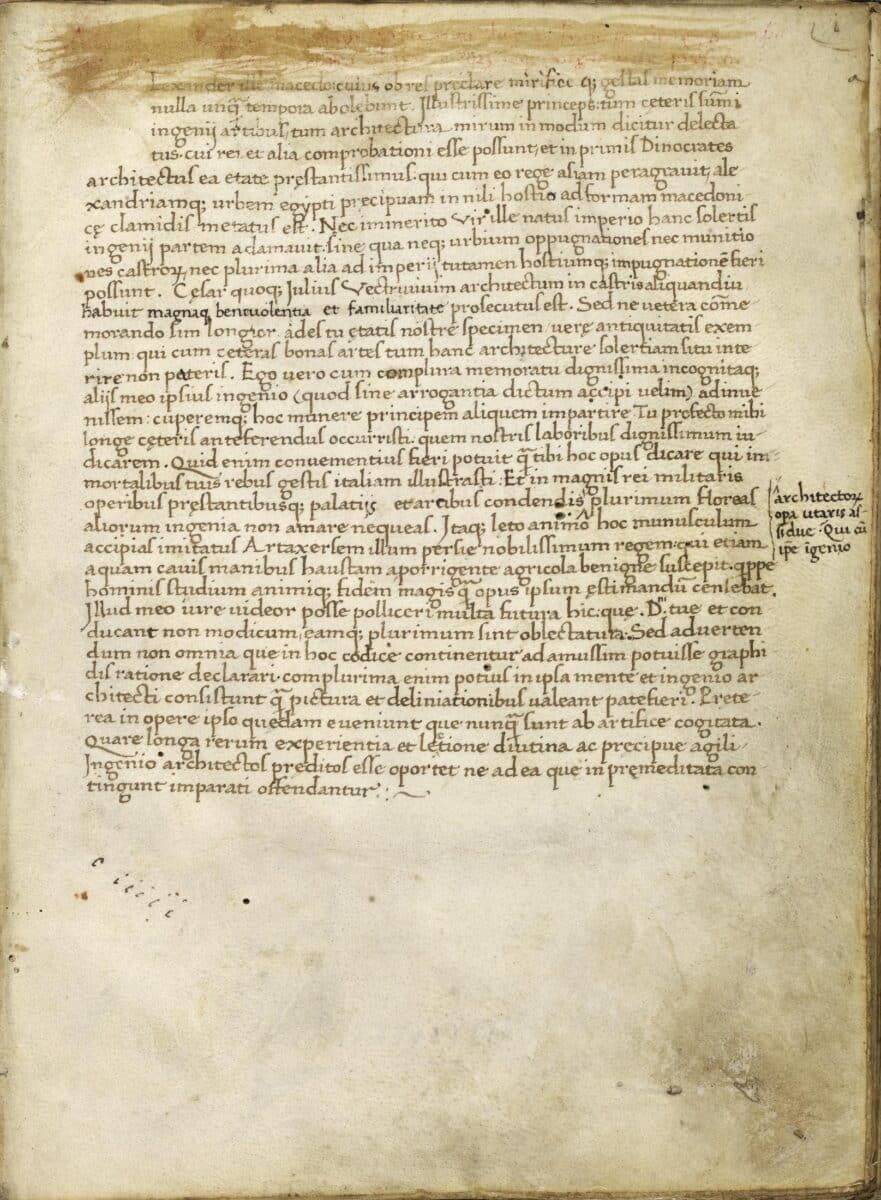 lexander ille macedo: cuius ob res preclare mirifice q; gestas memoriam
nulla unq̃ tempora abolebunt. Illustrissime princeps: tum ceteris sum̃i
ingenij artibus, tum architectura mirum in modum dicitur delecta
tus. cui rei et alia comprobationi esse possunt, et in primis Dinocrates
architectus ea etate pręstantissimus: qui cum eo rege asiam peragravit, ale
xandriamq; urbem egypti precipuam in nili hostio ad formam macedoni
cę clamidis metatus est. Nec immerito Vir ille natus imperio hanc solertis
ingenij partem adamavit. sine qua neq; urbium oppugnationes nec munitio
nes castroꝝ nec plurima alia ad imperij tutamen hostiumq; impugnationẽ fieri
possunt. Cesar quoq; Julius Vectruvium architectum in castris aliquandiu
habuit magnaq benevolentia et familiaritate prosecutus est. Sed ne vetera com̃e
morando sim longior. ades tu ętatis nostrę specimen vere antiquitatis exem
plum: qui cum ceteras bonas artes tum hanc architecture solertiam situ inte
rire non pateris. Ego vero cum complura memoratu dignissima incognitaq;
alijs meo ipsius ingenio (quod sine arrogantia dictum accipi velim) adinve
nissem: cuperemq; hoc munere principem aliquem impartire Tu profecto mihi
longe cęteris anteferendus occurristi. quem nostris laboribus dignissimum iu
dicarem. Quid enim convenientius fieri potuit q̃ tibi hoc opus dicare qui im
mortalibus tuis rebus gestis italiam illustrasti: Et in magnis rei militaris
operibus pręstantibusq; palatijs et arcibus condendis plurimum floreas
architectoꝝ
opa utaris as-
sidue. Qui cũ
ipe ĩgenio
aliorum ingenia non amare nequeas. Itaq; leto animo hoc munusculum
accipias imitatus Artaxersem illum persie nobilissimum regem: qui etiam
aquam cavis manibus haustam aporrigente agricola benigne suscepit. q̃ppe
hominis studium animiq; fidem magis q̃ opus ipsum ęstimandũ censebat.
Illud meo iure videor posse polliceri multa futura hic: que. D. tue et con
ducant non modicum, eamq; plurimum sint oblectatura. Sed adverten
dum non omnia que in hoc codice continentur ad amussim potuisse graphi
dis ratione declarari. complurima enim potius in ipsa mente et ingenio ar
chitecti consistunt q̃ pictura et deliniationibus valeant patefieri. Prete
rea in opere ipso quędam eveniunt que nunq̃ sunt ab artifice cogitata.
Quare longa rerum experientia et lectione diutina ac precipue agili
Ingenio architectos preditos esse oportet ne ad ea que inpręmeditata con
tingunt imparati offendantur: